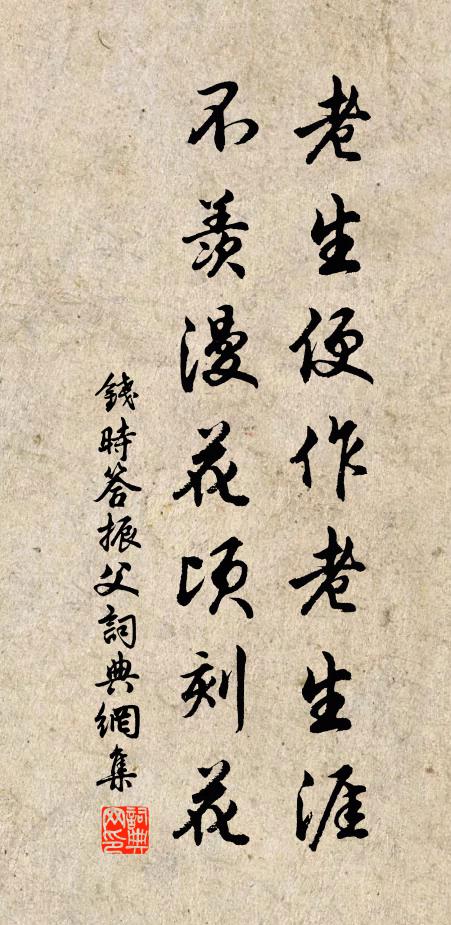 老生便作老生涯
不羨漫花頃刻花
錢時答振父詞典網集
詞典網印